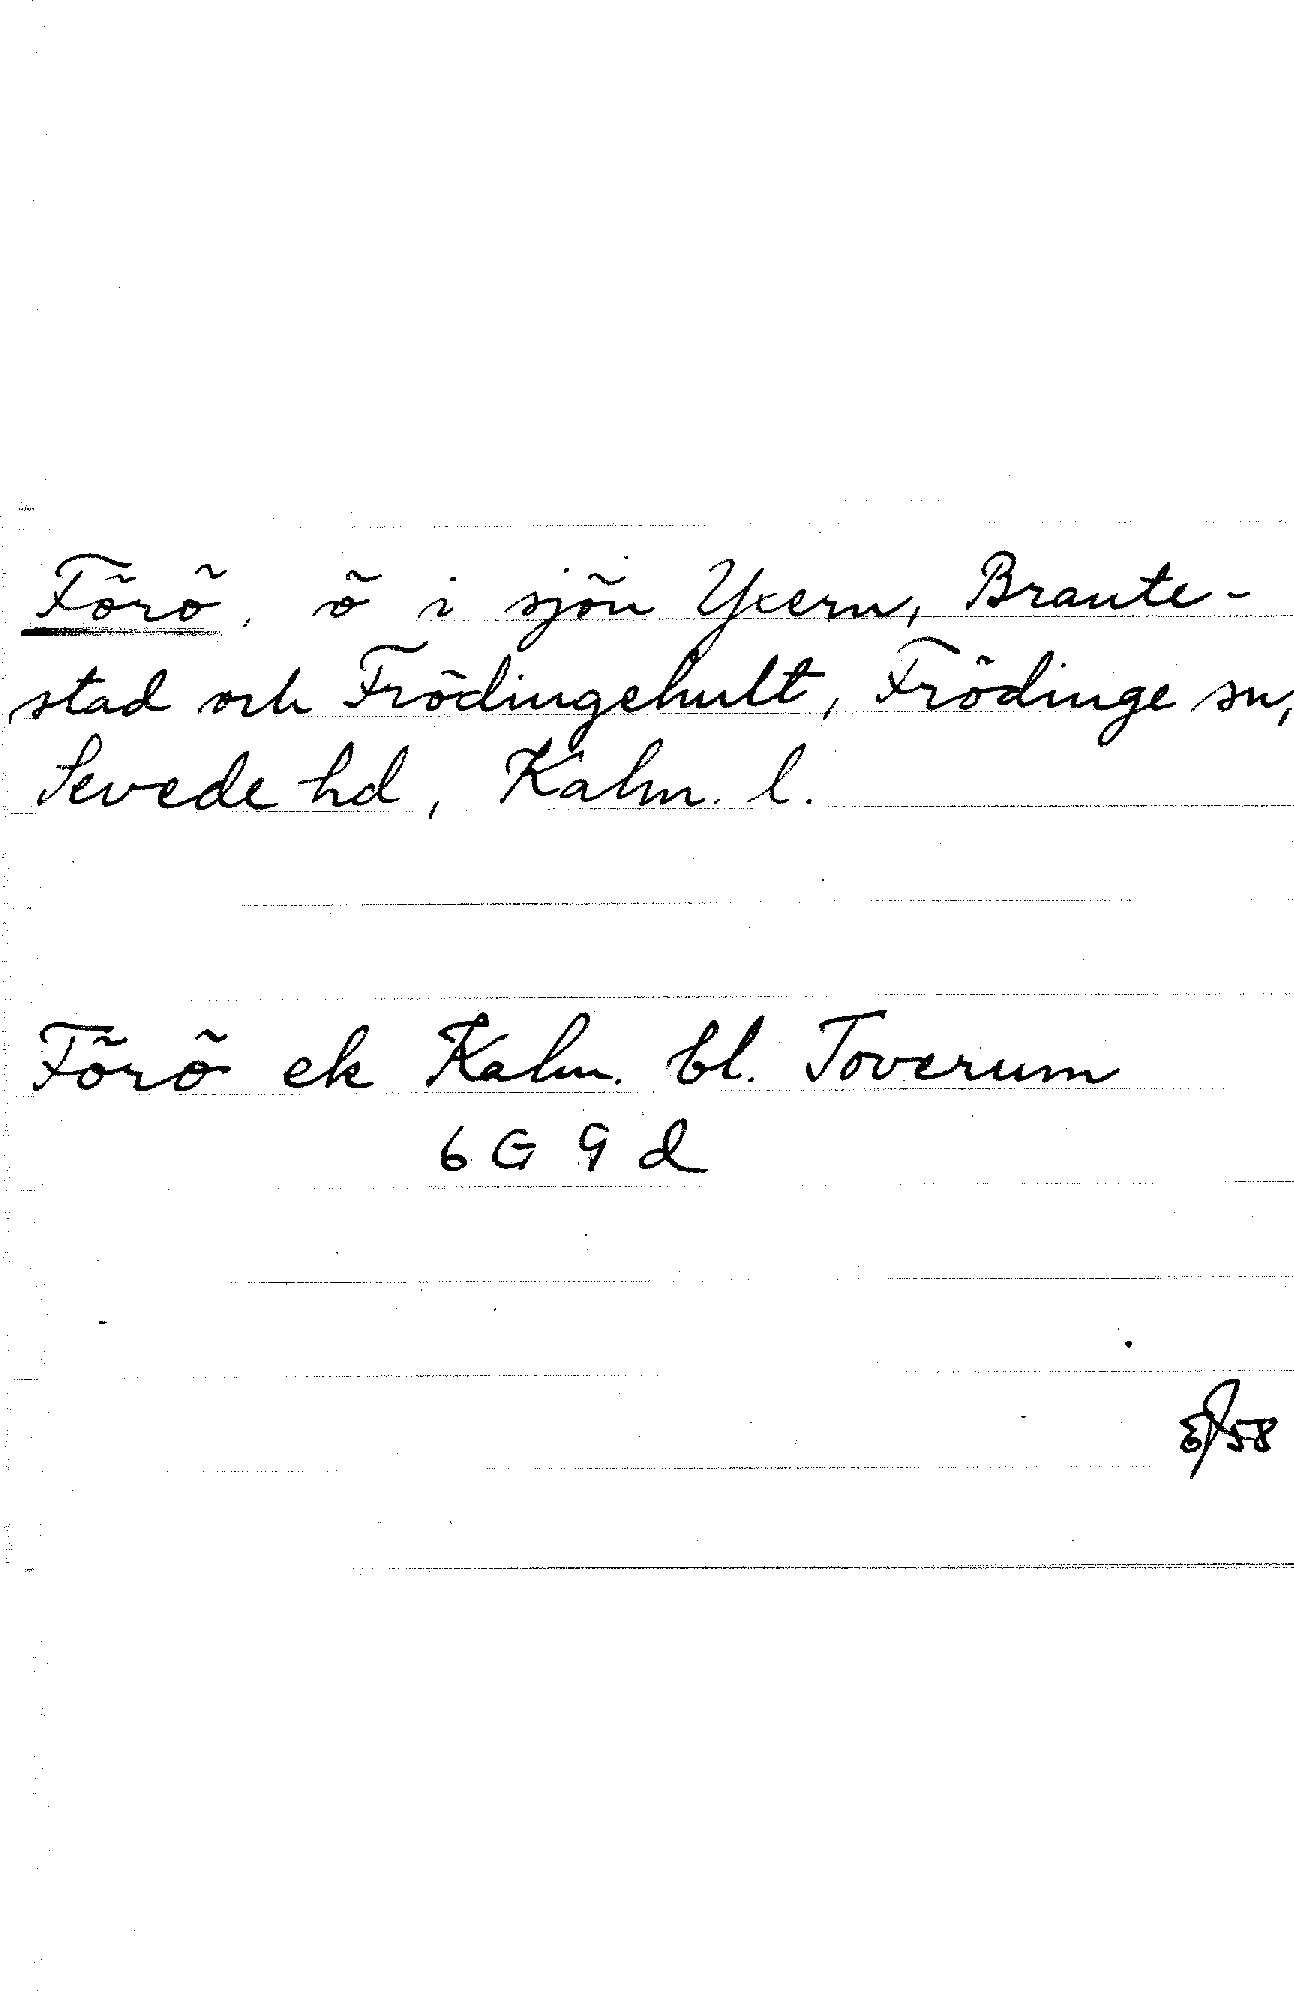 Förö, ö i sjön Yxern, Braute-
stad och Frödingehult, Frödinge sn,
Sevede hd, Kalm. l.
Förö ek Kalm. bl. Toverum
6 G 9 d
58